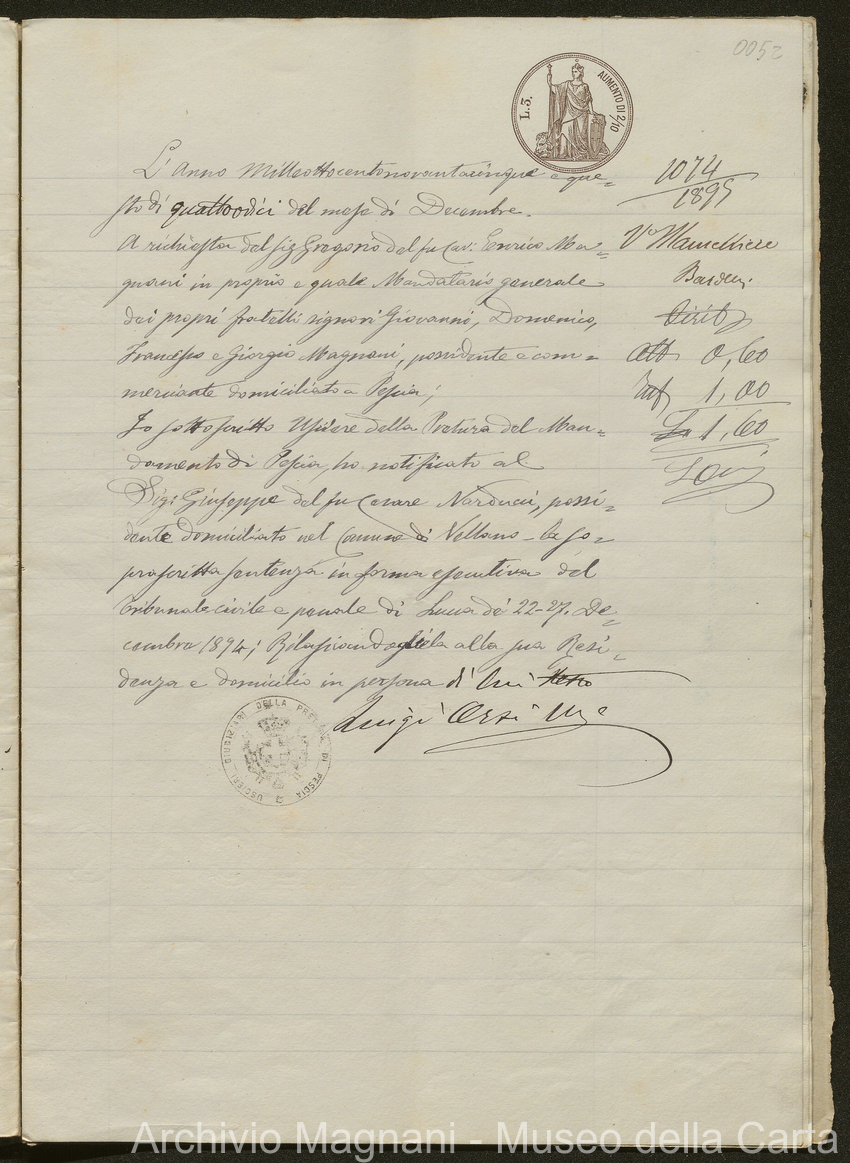 0052
L. 3. AUMENTO DI 2/10
L'Anno Milleottocentonovantacinque e que=
sto dì quattordici del mese di Decembre.
A richiesta del Sig Gregorio del fu Cav: Enrico Ma=
gnani in proprio e quale Mandatario generale
dei propri fratelli signori Giovanni, Domenico,
Francesco e Giorgio Magnani, possidente e com=
merciante domiciliato a Pescia;
Io sottoscritto Usciere della Pretura del Man=
damento di Pescia, ho notificato al
Sig: Giuseppe del fu Cesare Narducci, possi=
dente domiciliato nel Comune di Vellano - la so=
prascritta sentenza in forma esecutiva del
Tribunale civile e penale di Lucca de 22-27. De=
cembre 1894; Rilasciandogliela alla sua Resi=
denza e domicilio in persona di lui
Luigi Orsi Usc
1074
1895
Vo Il Cancelliere
Diritti
0,60
1,00
1,60
USCIERI GIUDIZIARI DELLA PRETURA DI PESCIA
Archivio Magnani - Museo della Carta